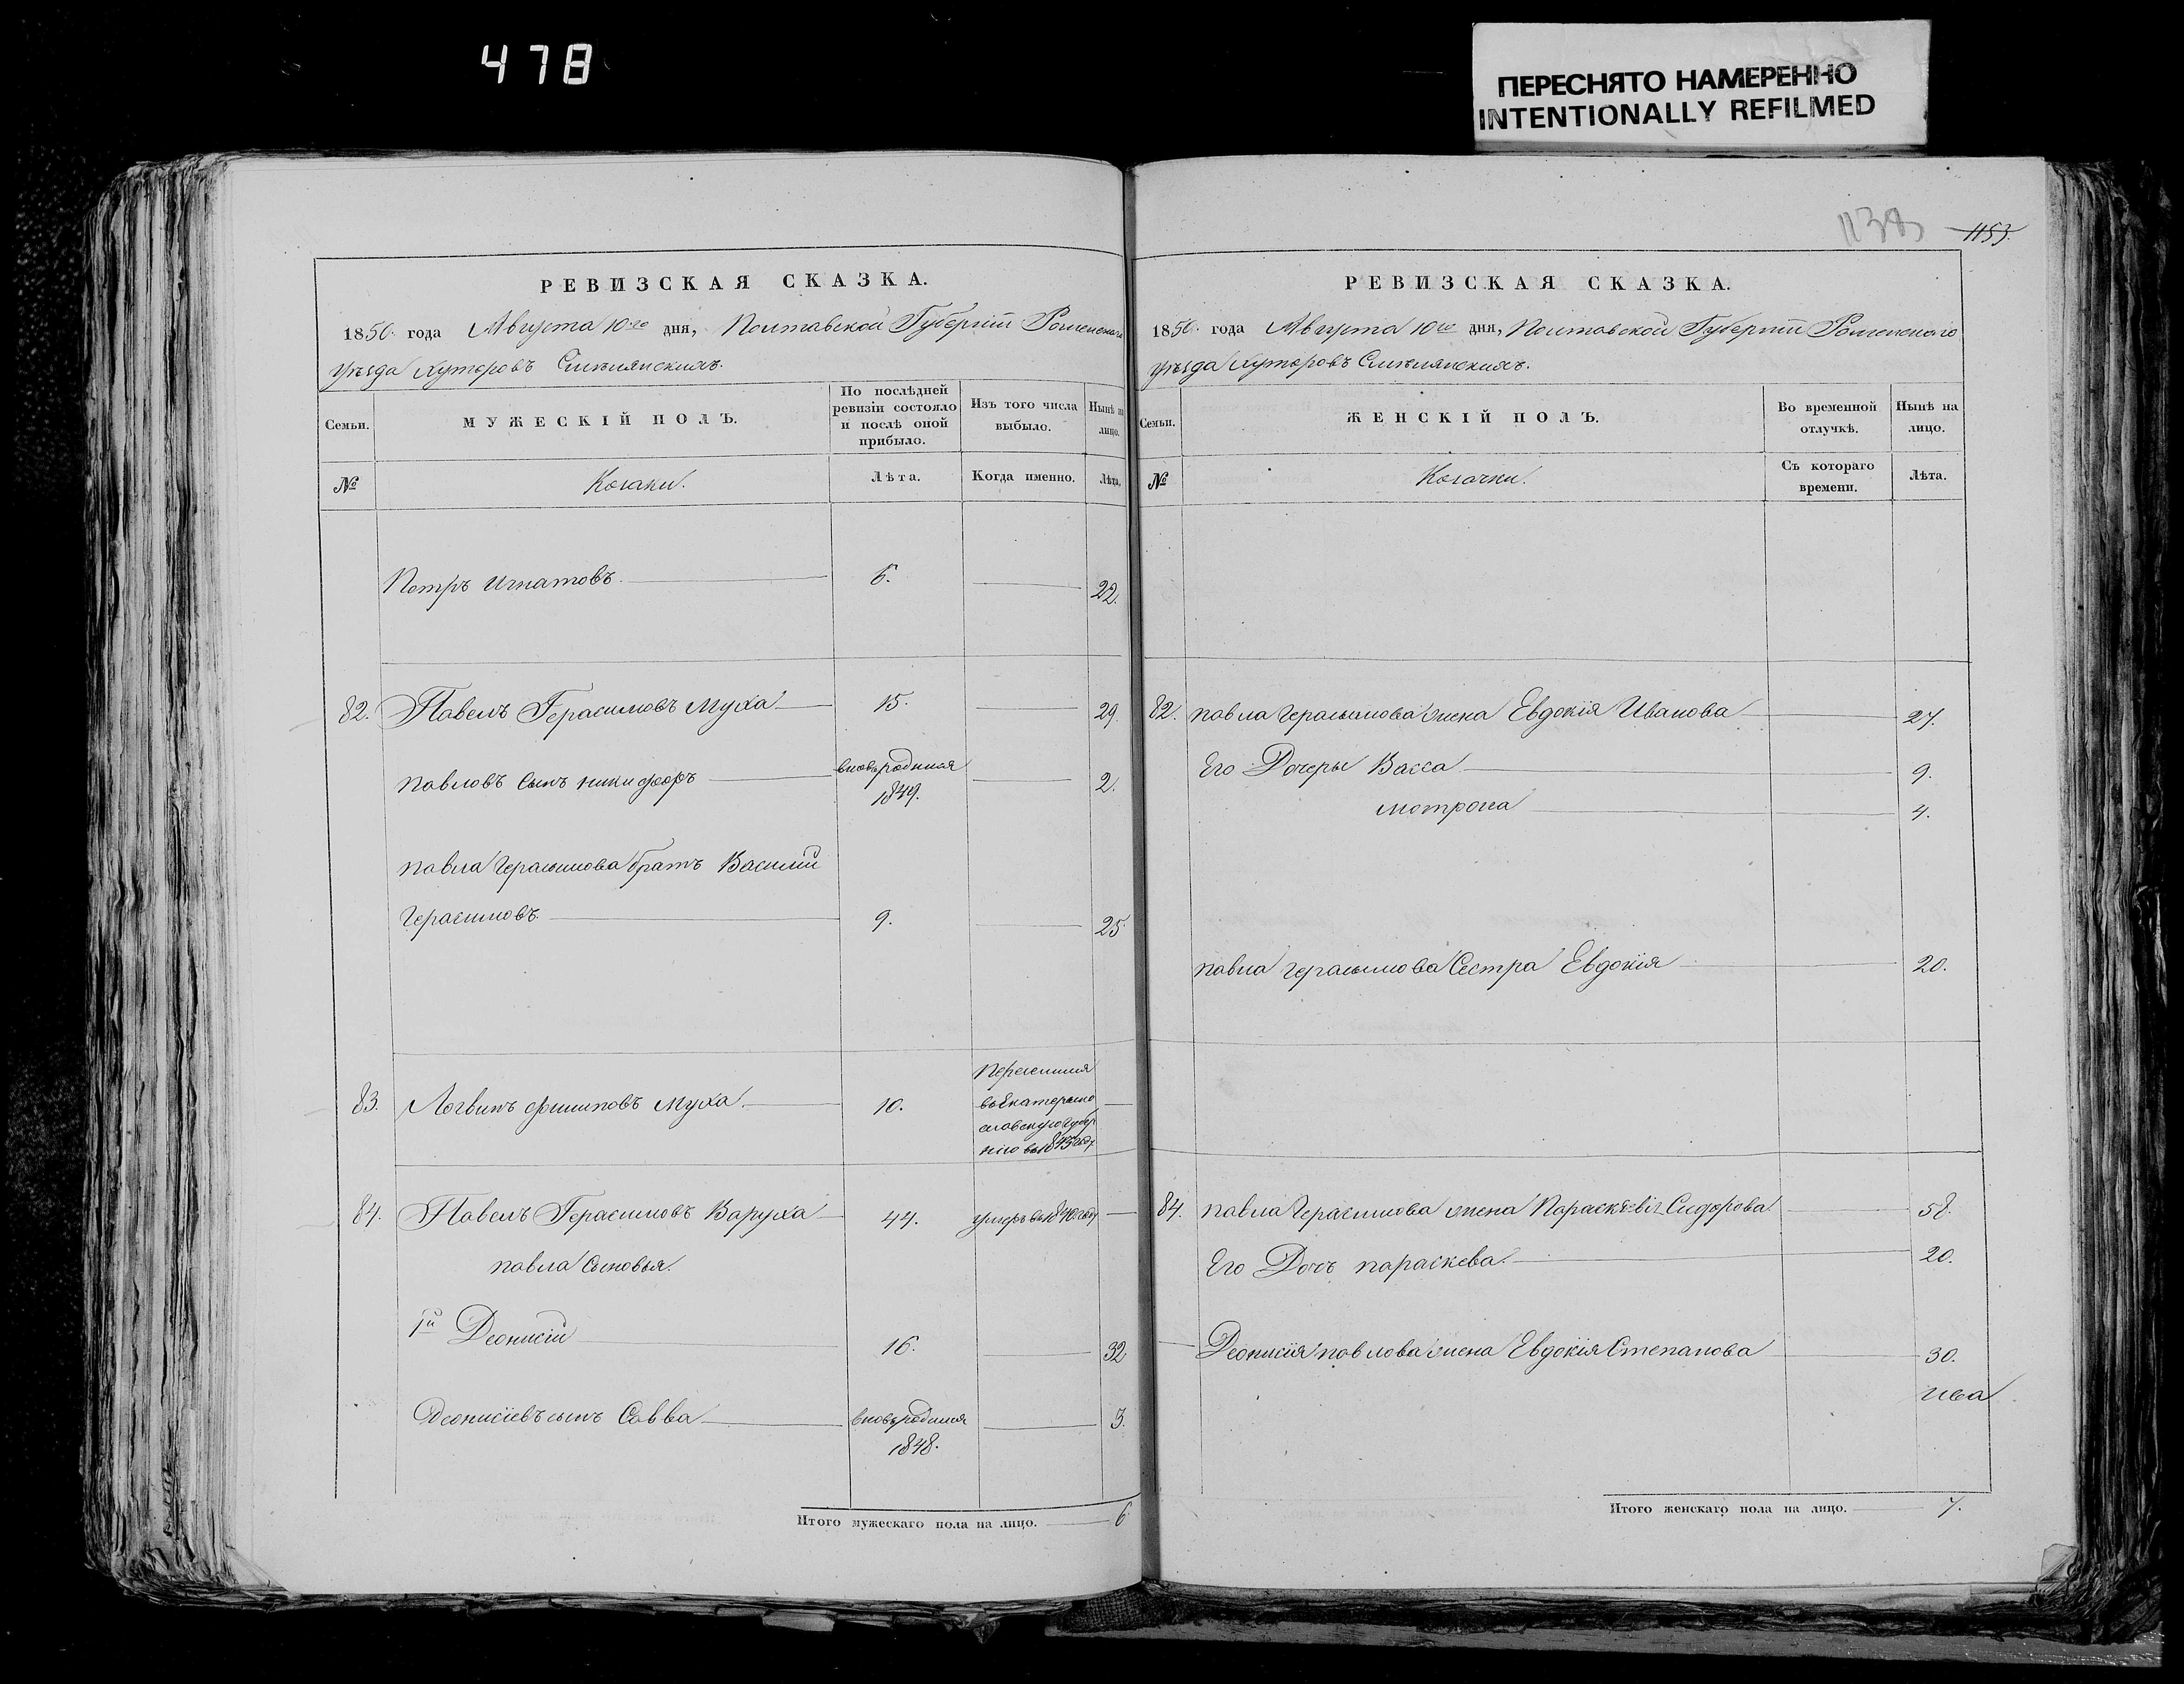 478
ПЕРЕСНЯТО НАМЕРЕННО
INTENTIONALLY REFILMED
1138
1153.
РЕВИЗСКАЯ СКАЗКА.
1850. года Августа 10го дня, Полтавской Губерніи Роменского
уѣзда хуторовъ Смѣлянскихъ.
Семьи.
МУЖЕСКІЙ ПОЛЪ.
По послѣдней
ревизіи состояло
и послѣ оной
прибыло.
Изъ того числа
выбыло.
Нынѣ на
лицо.
№
Козаки.
Лѣта.
Когда именно.
Лѣта.
Петръ Игнатовъ 6. 22.
82. Павелъ Герасимовъ Муха 15. 29.
павловъ сынъ никифоръ вновьродился 2.
1849.
павла Герасимова братъ Василий
Герасимовъ 9. 25.
83. Логвинъ филиповъ Муха 10.
Переселился
въ Екатерино
славскую губер
нію въ 1845 году
84. Павелъ Герасимовъ Варуха 44. умеръ въ 1840 году
павла сыновья.
1й Деонисій 16. 32.
Деонисіевъ сынъ Савва вновьродился 3.
1848.
Итого мужескаго пола на лицо. 6.
РЕВИЗСКАЯ СКАЗКА.
1850. года Августа 10го дня, Полтавской Губерніи Роменского
уѣзда хуторовъ Смѣлянскихъ.
Семьи.
ЖЕНСКІЙ ПОЛЪ.
Во временной
отлучкѣ.
Нынѣ на
лицо.
№
Козачки.
Съ котораго
времени.
Лѣта.
82. павла Герасимова жена Евдокія Иванова 27.
Его Дочеры Васса 9.
мотрона 4.
павла Герасимова Сестра Евдокія 20.
84. павла Герасимова жена Сидорова 58.
Его Дочъ параскева 20.
Деонисія павлова жена Евдокія Степанова 30.
Итого женскаго пола на лицо. 7.